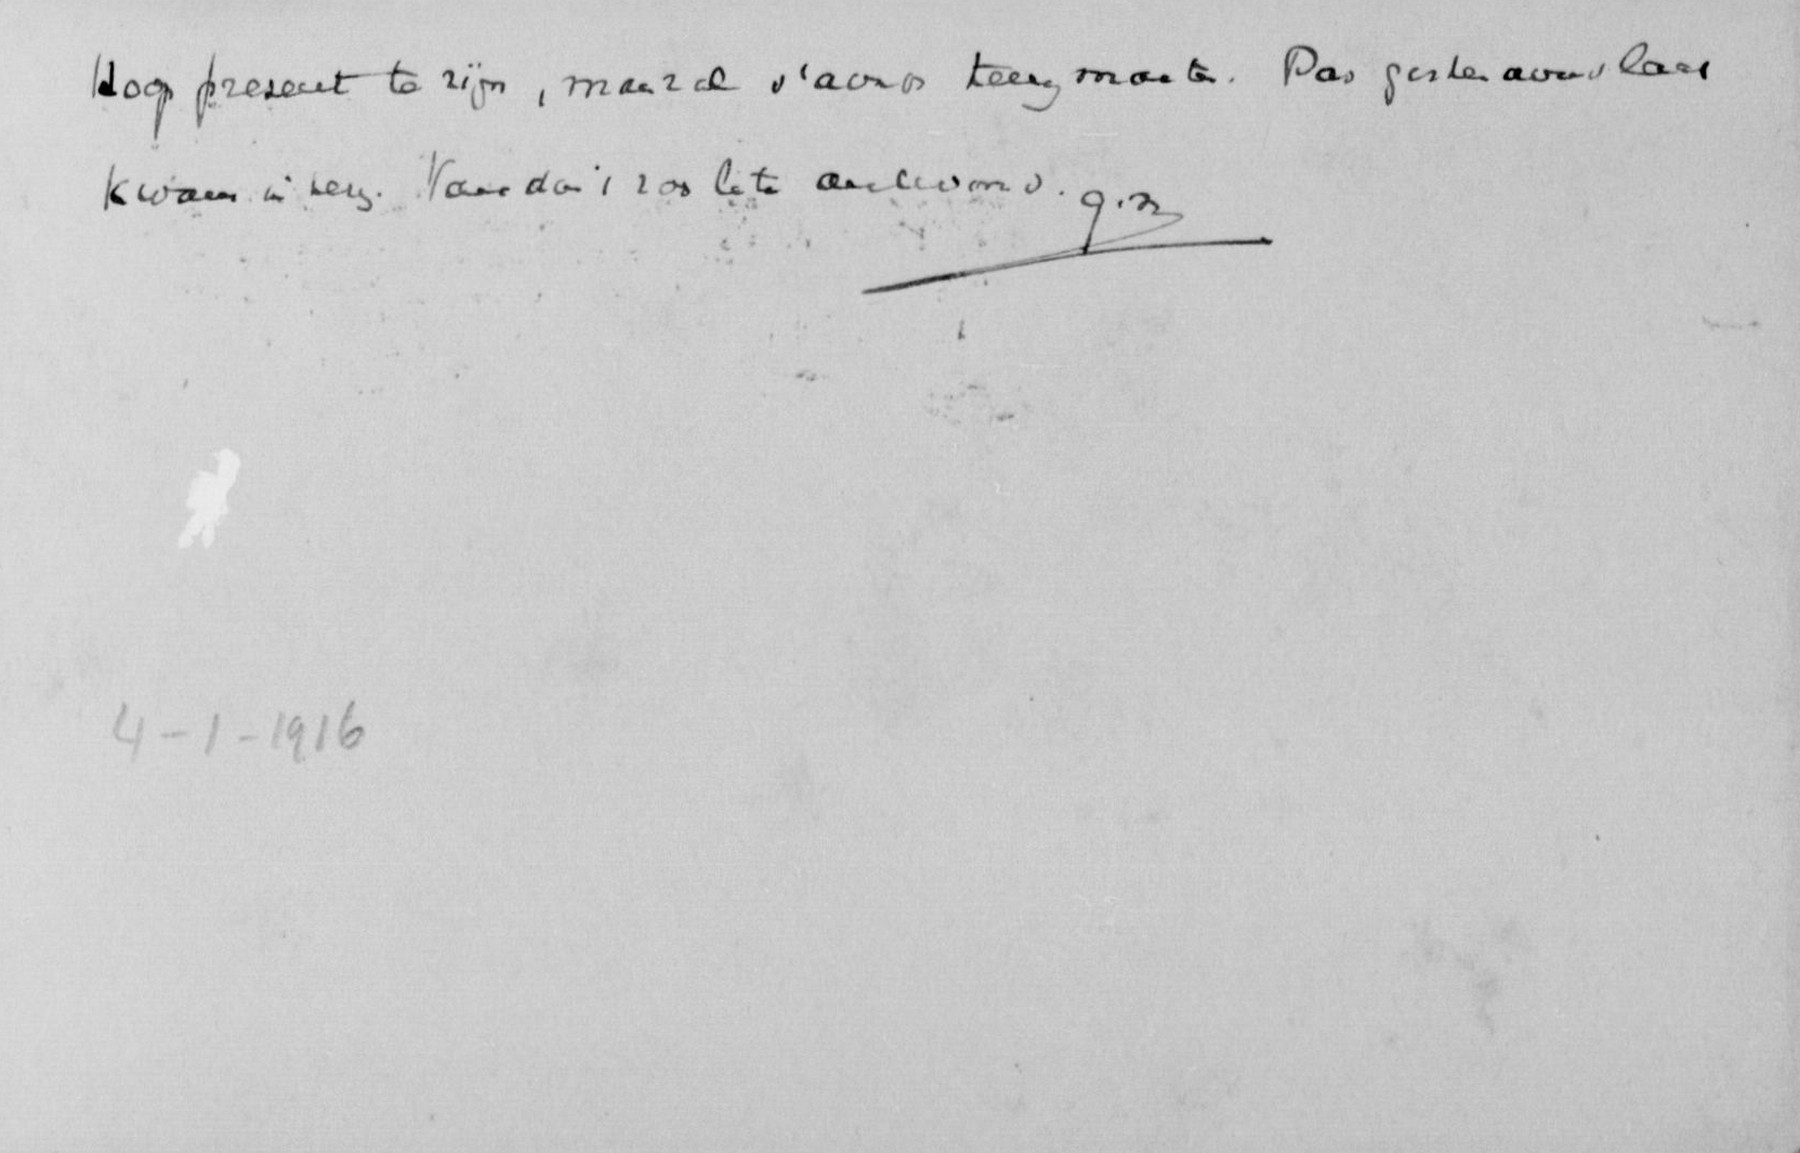 Hoop present te zijn, maar zal 's avonds terug moeten. Pas gisteren avond laat
kwam ik terug. Vandaar 't zoo late antwoord.
4-1-1916